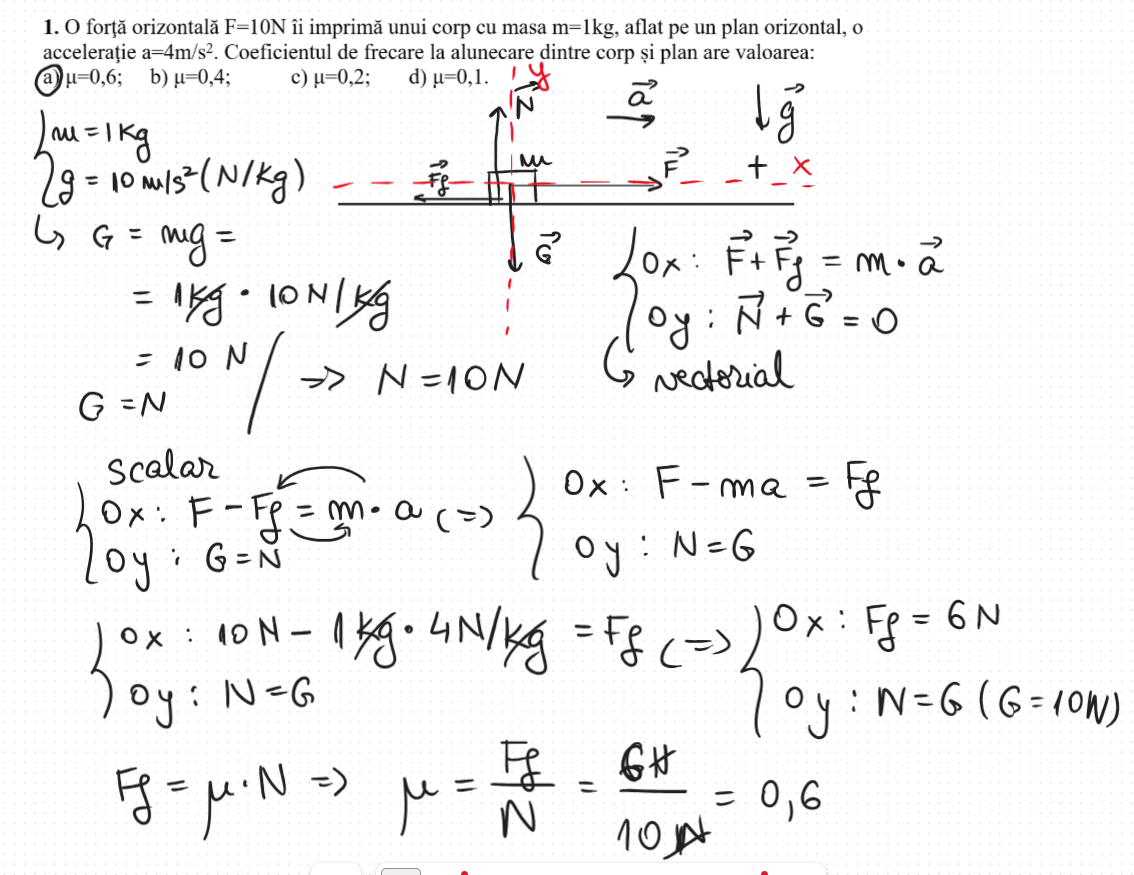 1. O forță orizontală F=10N îi imprimă unui corp cu masa m=1kg, aflat pe un plan orizontal, o
accelerație a=4m/s². Coeficientul de frecare la alunecare dintre corp și plan are valoarea:
a) μ=0,6; b) μ=0,4; c) μ=0,2; d) μ=0,1.
y
N⃗
a⃗
g⃗
m = 1 Kg
g = 10 m/s² (N/Kg)
m
F⃗f
F⃗
+ x
G⃗
G = mg =
= 1Kg · 10 N/Kg
= 10 N
G = N
=> N = 10N
Ox : F⃗ + F⃗f = m · a⃗
Oy : N⃗ + G⃗ = 0
vectorial
scalar
Ox : F - Ff = m · a (=>)
Oy : G = N
Ox : F - ma = Ff
Oy : N = G
Ox : 10 N - 1 Kg · 4N/Kg = Ff (=>)
Oy : N = G
Ox : Ff = 6 N
Oy : N = G (G = 10N)
Ff = μ · N => μ = Ff / N = 6N / 10 N = 0,6